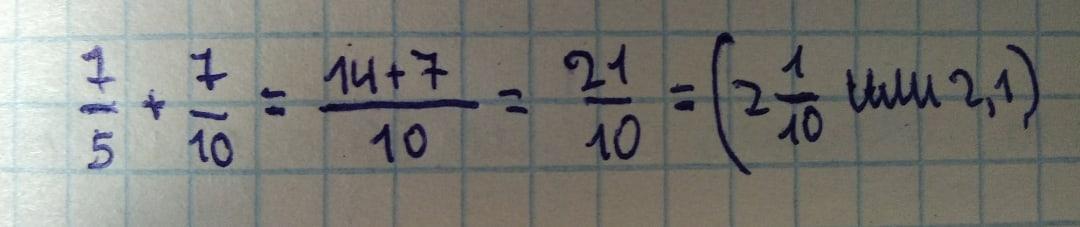 7/5 + 7/10 = (14+7)/10 = 21/10 = (2 1/10 или 2,1)